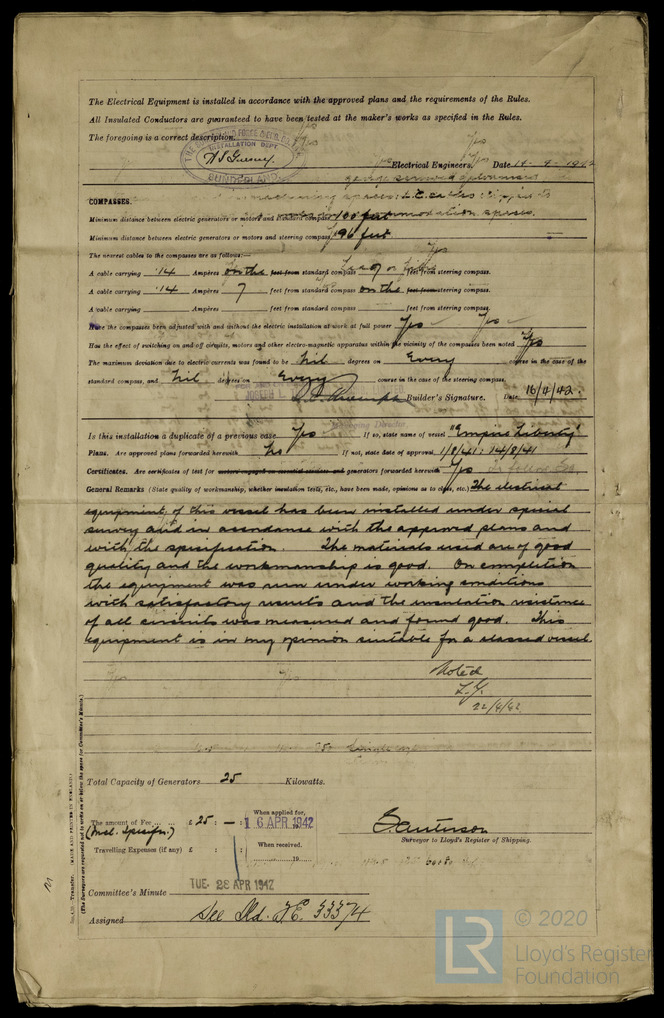 The Electrical Equipment is installed in accordance with the approved plans and the requirements of the Rules.
All Insulated Conductors are guaranteed to have been tested at the maker's works as specified in the Rules.
The foregoing is a correct description.
INSTALLATION DEPT
SUNDERLAND
Electrical Engineers. Date 14-4-1942
COMPASSES.
Minimum distance between electric generators or motors and standard compass 100 feet
Minimum distance between electric generators or motors and steering compass 96 feet
The nearest cables to the compasses are as follows:—
A cable carrying .14 Ampères on the feet from standard compass feet from steering compass.
A cable carrying .14 Ampères 7 feet from standard compass on the feet from steering compass.
A cable carrying Ampères feet from standard compass feet from steering compass.
Have the compasses been adjusted with and without the electric installation at work at full power Yes
Has the effect of switching on and off circuits, motors and other electro-magnetic apparatus within the vicinity of the compasses been noted Yes
The maximum deviation due to electric currents was found to be Nil degrees on Every course in the case of the
standard compass, and Nil degrees on Every course in the case of the steering compass.
Builder's Signature. Date 16/4/42.
Is this installation a duplicate of a previous case Yes If so, state name of vessel "Empire Liberty"
Plans. Are approved plans forwarded herewith No If not, state date of approval 1/8/41: 14/8/41
Certificates. Are certificates of test for generators forwarded herewith Yes
General Remarks (State quality of workmanship, whether insulation tests, etc., have been made, opinions as to class, etc.) The electrical
equipment of this vessel has been installed under special
survey and in accordance with the approved plans and
with the specification. The materials used are of good
quality and the workmanship is good. On completion
the equipment was run under working conditions
with satisfactory results and the insulation resistance
of all circuits was measured and found good. This
equipment is in my opinion suitable for a classed vessel.
Noted
22/4/42
Total Capacity of Generators 25 Kilowatts.
The amount of Fee ... £ 25 : — : When applied for, 16 APR 1942
(Incl. Specifn.)
Travelling Expenses (if any) £ : : When received. 19
Surveyor to Lloyd's Register of Shipping.
Committee's Minute TUE. 28 APR 1942
Assigned See Ild. F.E. 33374
(The Surveyors are requested not to write on or below the space for Committee's Minute.)
LR
© 2020
Lloyd's Register
Foundation